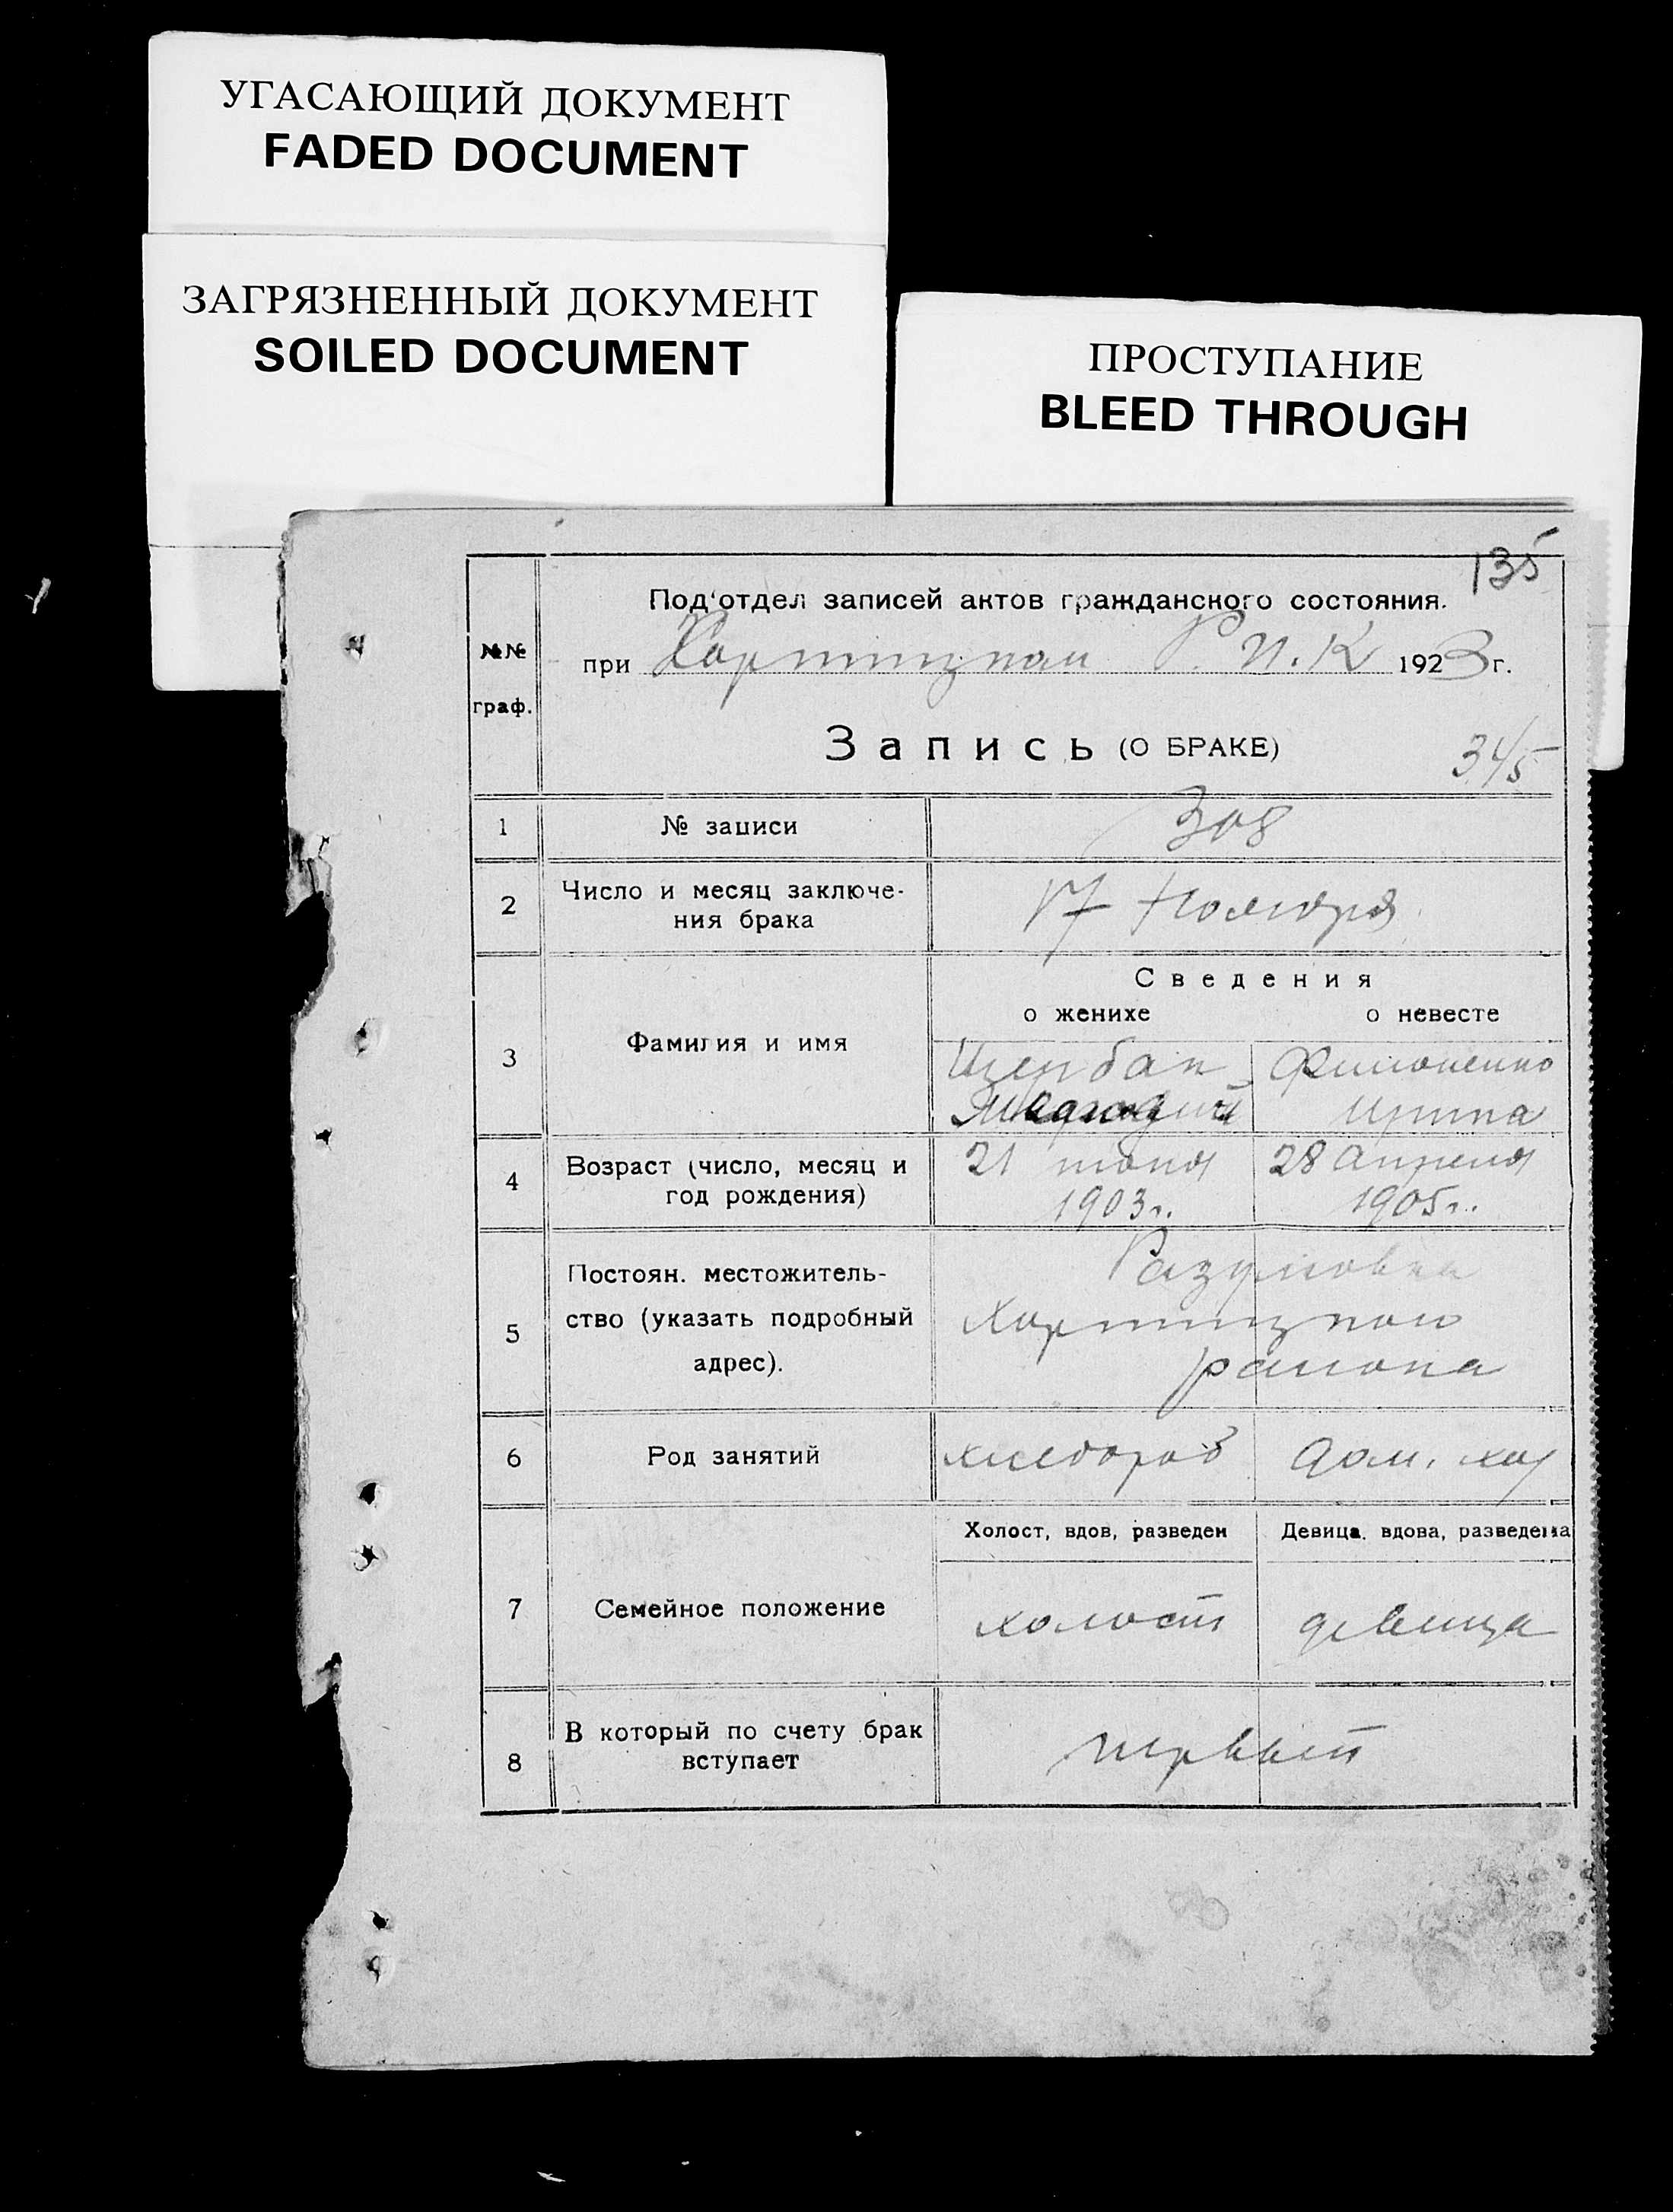 УГАСАЮЩИЙ ДОКУМЕНТ
FADED DOCUMENT
ЗАГРЯЗНЕННЫЙ ДОКУМЕНТ
SOILED DOCUMENT
ПРОСТУПАНИЕ
BLEED THROUGH
135
№№
граф.
Под'отдел записей актов гражданского состояния.
при Хортицком Р. И. К 1923 г.
Запись (О БРАКЕ)
345
1 № записи 308
2 Число и месяц заключе-
ния брака 17 Ноября
Сведения
о женихе о невесте
3 Фамилия и имя
Щербак Филоненко
Ирина
4 Возраст (число, месяц и
год рождения)
21 28 апреля
1903г. 1905г.
5 Постоян. местожитель-
ство (указать подробный
адрес).
Разумовка
Хортицкого
района
6 Род занятий хлебороб дом. хоз
Холост, вдов, разведен Девица, вдова, разведена
7 Семейное положение холост девица
8 В который по счету брак
вступает первый